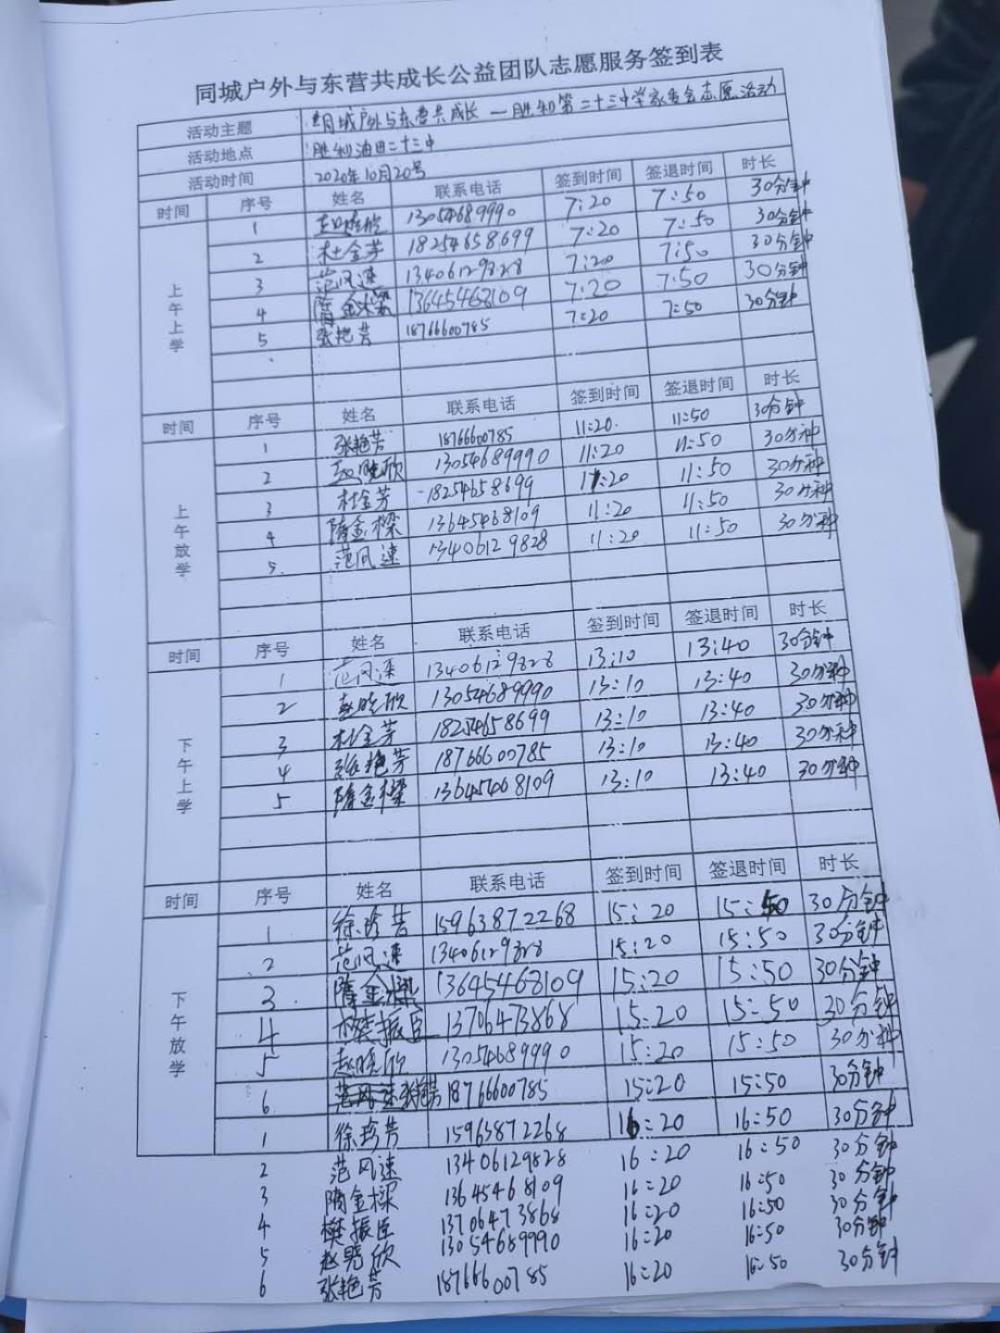 同城户外与东营共成长公益团队志愿服务签到表
活动主题 同城户外与东营共成长 — 胜利第二十三中学家委会志愿活动
活动地点 胜利油田二十三中
活动时间 2020年10月20号
时间 序号 姓名 联系电话 签到时间 签退时间 时长
上午上学
1 赵晓欣 13054689990 7:20 7:50 30分钟
2 杜金芳 18254658699 7:20 7:50 30分钟
3 范风速 13406129828 7:20 7:50 30分钟
4 隋金樑 13645468109 7:20 7:50 30分钟
5 张艳芳 18766600785 7:20 7:50 30分钟
时间 序号 姓名 联系电话 签到时间 签退时间 时长
上午放学
1 张艳芳 18766600785 11:20 11:50 30分钟
2 赵晓欣 13054689990 11:20 11:50 30分钟
3 杜金芳 18254658699 11:20 11:50 30分钟
4 隋金樑 13645468109 11:20 11:50 30分钟
5 范风速 13406129828 11:20 11:50 30分钟
时间 序号 姓名 联系电话 签到时间 签退时间 时长
下午上学
1 范风速 13406129828 13:10 13:40 30分钟
2 赵晓欣 13054689990 13:10 13:40 30分钟
3 杜金芳 18254658699 13:10 13:40 30分钟
4 张艳芳 18766600785 13:10 13:40 30分钟
5 隋金樑 13645468109 13:10 13:40 30分钟
时间 序号 姓名 联系电话 签到时间 签退时间 时长
下午放学
1 徐珍芳 15963872268 15:20 15:50 30分钟
2 范风速 13406129828 15:20 15:50 30分钟
3 隋金樑 13645468109 15:20 15:50 30分钟
4 樊振臣 13706473868 15:20 15:50 30分钟
5 赵晓欣 13054689990 15:20 15:50 30分钟
6 张艳芳 18766600785 15:20 15:50 30分钟
1 徐珍芳 15963872268 16:20 16:50 30分钟
2 范风速 13406129828 16:20 16:50 30分钟
3 隋金樑 13645468109 16:20 16:50 30分钟
4 樊振臣 13706473868 16:20 16:50 30分钟
5 赵晓欣 13054689990 16:20 16:50 30分钟
6 张艳芳 18766600785 16:20 16:50 30分钟